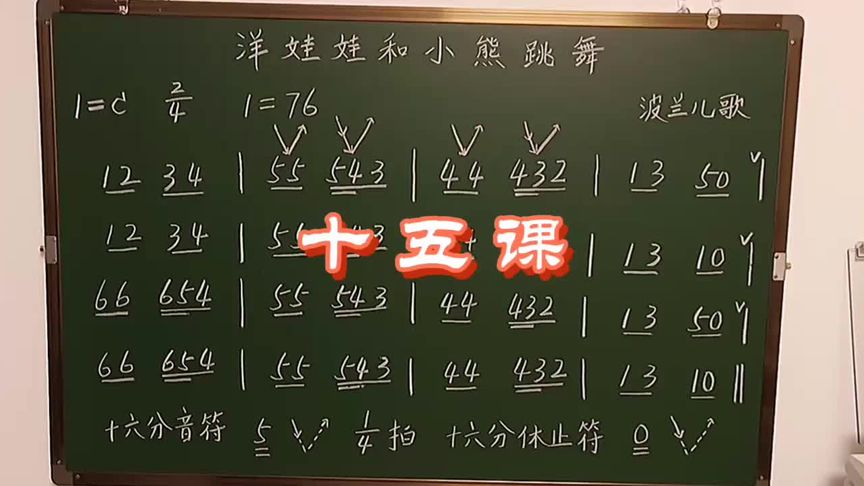 洋娃娃和小熊跳舞
1=C 2/4 1=76 波兰儿歌
12 34 | 55 543 | 44 432 | 13 50 ∨|
12 34 | 55 543 | 13 10 ∨|
十五课
66 654 | 55 543 | 44 432 | 13 50 ∨|
66 654 | 55 543 | 44 432 | 13 10 ‖
十六分音符 5 1/4拍 十六分休止符 0